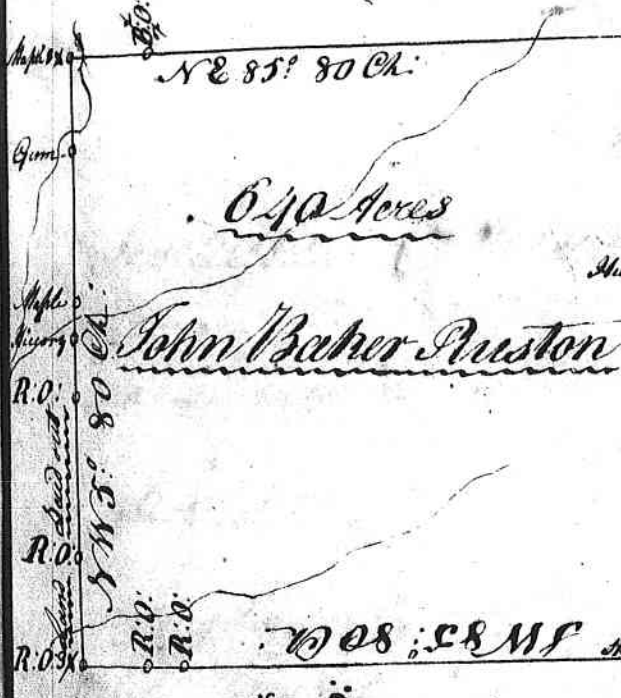 B:O:
Maple 3x
NE 85° 80 Ch:
Gum
640 Acres
Maple
Hicory
John Baker Ruston
R:O:
NW 5° 80 Ch:
Land Laid out
R:O:
R:O:
R:O:
R:O: 3x
SW 85° 80 Ch.